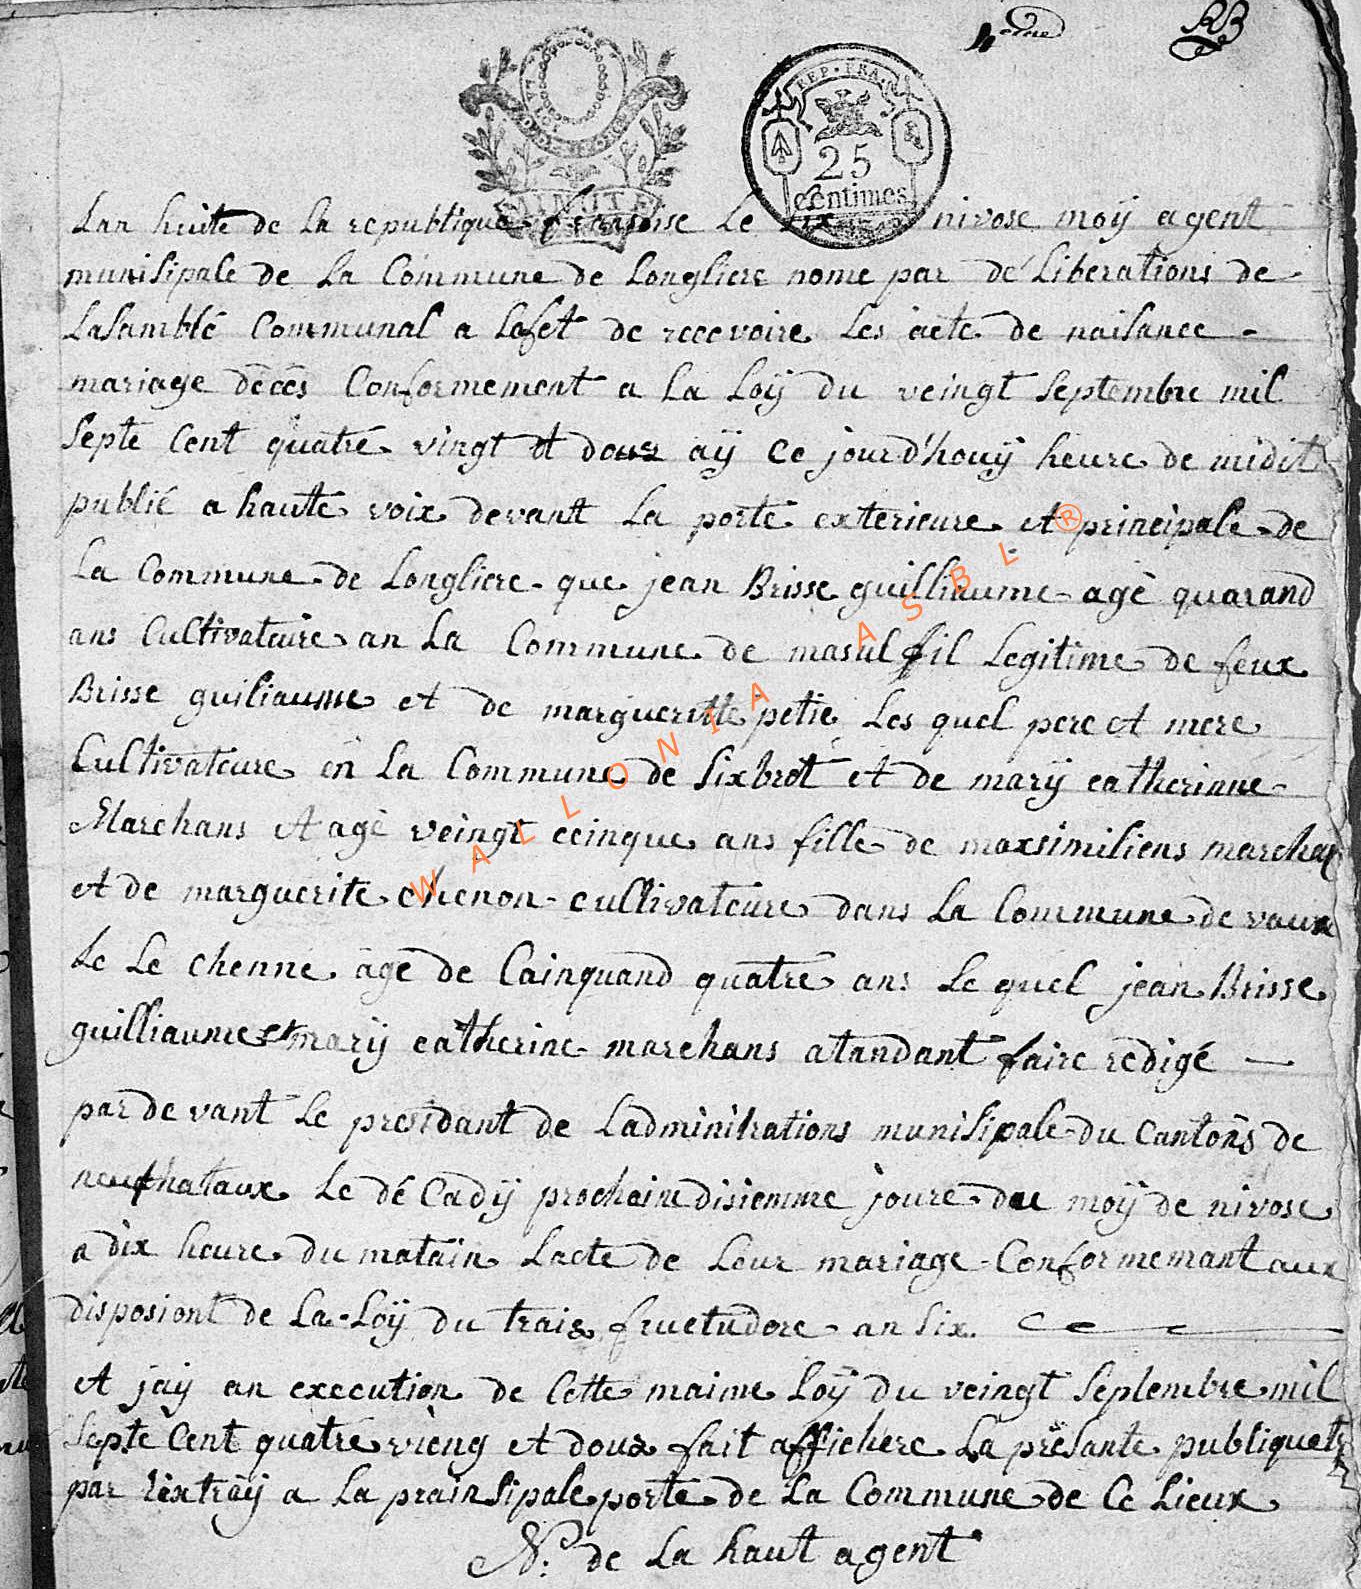 4eme RB
MINUTE
REP. FRA.
25
centimes
Lan huite de la republique fransoise le six nivose moÿ agent
munisipale de La Commune de Longliere nome par dé Liberations de
Lasamblé Communal a Lefet de recevoire Les acte de naisance
mariage décés Conformement a La Loÿ du veingt Septembre mil
Septe Cent quatre vingt et douz aÿ Ce jourd'houÿ heure de midit
publié a haute voix devant La porte exterieure et principale de
La Commune de Longliere que jean Brisse guilliaume agé quarand
ans Cultivateure an La Commune de masul fil Legitime de feux
Brisse guiliaume et de margueritte petie Les quel pere et mere
Cultivateure en La Commune de Sixbrot et de marÿ catherinne
Marchans et agé veingt ceinque ans fille de maxsimiliens marchan
et de marguerite chenon cultivateure dans La Commune de vaux
Le Le chenne agé de Cainquand quatre ans Le quel jean Brisse
guilliaume et marÿ catherine marchans atandant faire redigé
par devant Le presidant de Ladminitrations munisipale du Cantons de
neufhataux Le dé Cadÿ prochaine disiemme joure du moÿ de nivose
a dix heure du matain Lacte de Leur mariage Conformemant aux
disposiont de La Loÿ du trais fructudore an Six.
et jaÿ an execution de Cette maime Loÿ du veingt Septembre mil
Septe Cent quatre vieng et douz fait affichere La présante publiquets
par Extraÿ a La prainsipale porte de La Commune de Ce Lieux
N. de La haut agent
WALLONIA ASBL ®